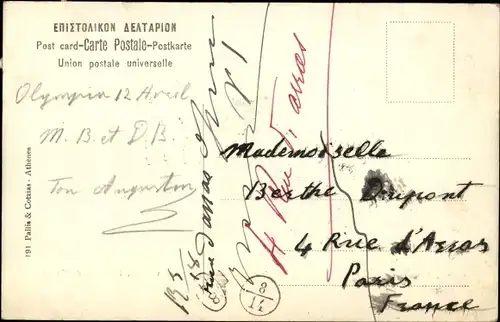 ΕΠΙΣΤΟΛΙΚΟΝ ΔΕΛΤΑΡΙΟΝ
Post card-Carte Postale-Postkarte
Union postale universelle
Olympia 12 Avril
M. B. et D. B.
Ton Augustin
191 Pallis & Cotzias - Athènes
Mademoiselle
Berthe Dupont
4 Rue d'Arras
Paris
France
4 Rue d'arras
8/14